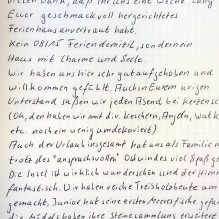 Vielen Dank, daß Ihr uns eine Woche lang
Euer geschmackvoll hergerichtetes
Ferienhaus anvertraut habt.
Kein 0815 Feriendomizil, sondern ein
Haus mit Charme und Seele.
Wir haben uns hier sehr gut aufgehoben und
willkommen gefühlt. Auch in Eurem urigen
Unterstand saßen wir jeden Abend bei Kerzensch
(Ok, den haben wir mit div. Keschern, Angeln, Wat
etc. noch ein wenig umdekoriert).
Auch der Urlaub insgesamt hat uns als Familie
trotz des "anspruchvollen" Ostwindes viel Spaß ge
Die Insel ist wirklich wunderschön und der Himm
fantastisch. Wir haben reiche Treibholzbeute am
gemacht, Junior hat seine erste Meeresfische gefa
die haben ihre Steinesammlung erweitert